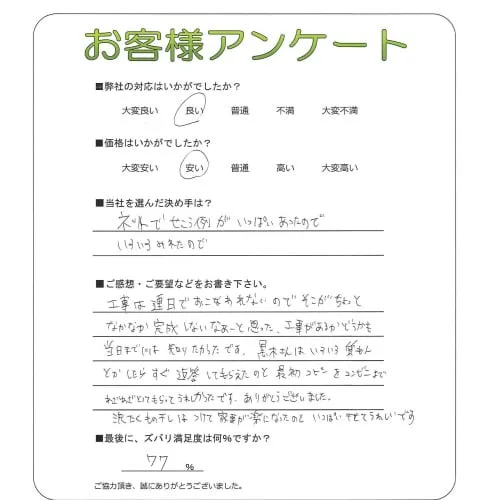 お客様アンケート
■弊社の対応はいかがでしたか?
大変良い 良い 普通 不満 大変不満
■価格はいかがでしたか?
大変安い 安い 普通 高い 大変高い
■当社を選んだ決め手は?
ネットで せこう例が いっぱい あったので
いろいろ みれたので
■ご感想・ご要望などをお書き下さい。
工事は連日でおこなわれないので そこがちょっと
なかなか 完成 しないなぁーと 思った、工事があるかどうかも
当日までには 知りたかったです。黒木さんは いろいろ 質もん
とか したら すぐ 返答 してもらえたのと 最初 コピーを コンビニまで
わざわざ とってもらって うれしかったです。ありがとうございました。
洗たくもの干しは つけて 家事が楽になったのと いっぱい 干せてうれしいです
■最後に、ズバリ満足度は何%ですか?
77 %
ご協力頂き、誠にありがとうございました。